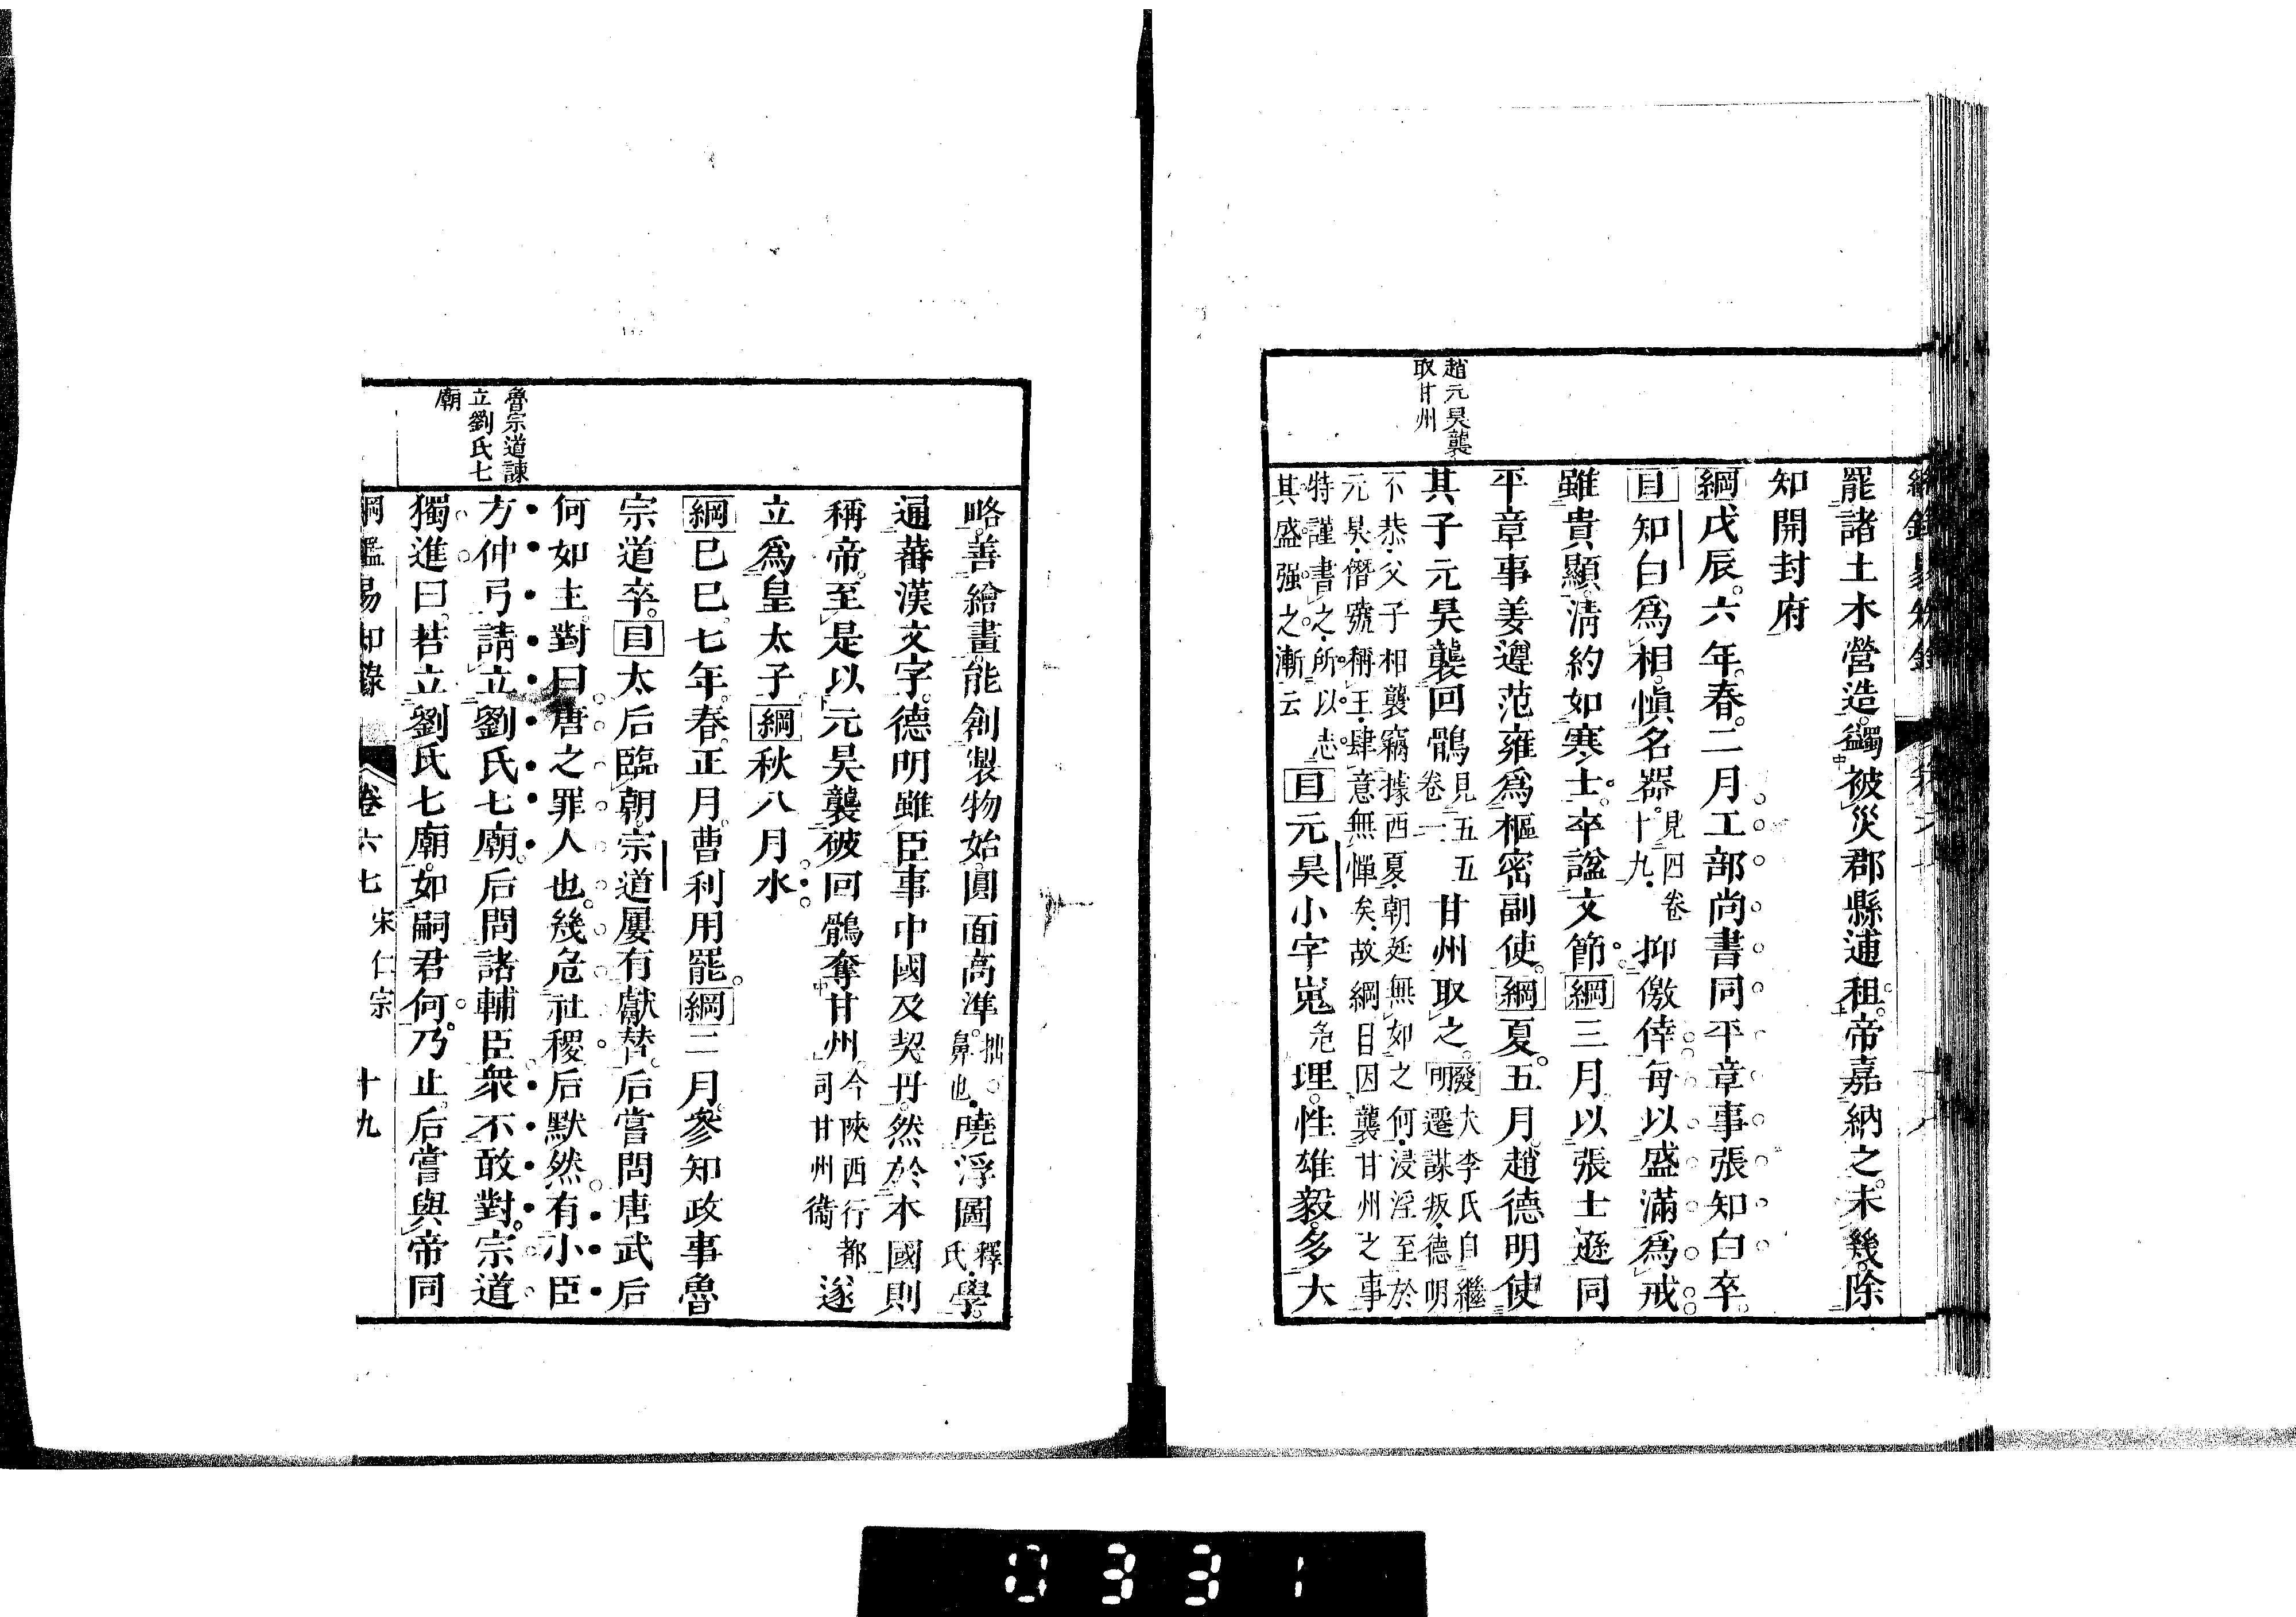 趙元昊襲
取甘州
罷諸土木營造蠲被災郡縣逋租帝嘉納之未幾除
知開封府
綱戊辰六年春二月工部尚書同平章事張知白卒
目知白爲相愼名器見四卷十九抑儌倖每以盛滿爲戒
雖貴顯淸約如寒士卒諡文節綱三月以張士遜同
平章事姜遵范雍爲樞密副使綱夏五月趙德明使
其子元昊襲回鶻見五五卷一甘州取之發明夫李氏自繼遷謀叛德明
不恭父子相襲竊據西夏朝廷無如之何浸淫至於
元昊僭號稱王肆意無憚矣故綱目因襲甘州之事
特謹書之所以志其盛强之漸云目元昊小字嵬危理性雄毅多大
魯宗道諫
立劉氏七
廟
略善繪畫能創製物始圓面高準拙鼻也曉浮圖釋氏學
通蕃漢文字德明雖臣事中國及契丹然於木國則
稱帝至是以元昊襲破回鶻奪甘州今陝西行都司甘州衞遂
立爲皇太子綱秋八月水
綱己巳七年春正月曹利用罷綱二月參知政事魯
宗道卒目太后臨朝宗道屢有獻替后嘗問唐武后
何如主對曰唐之罪人也幾危社稷后默然有小臣
方仲弓請立劉氏七廟后問諸輔臣衆不敢對宗道
獨進曰若立劉氏七廟如嗣君何乃止后嘗與帝同
綱鑑易知錄 卷六七 宋仁宗 十九
0331